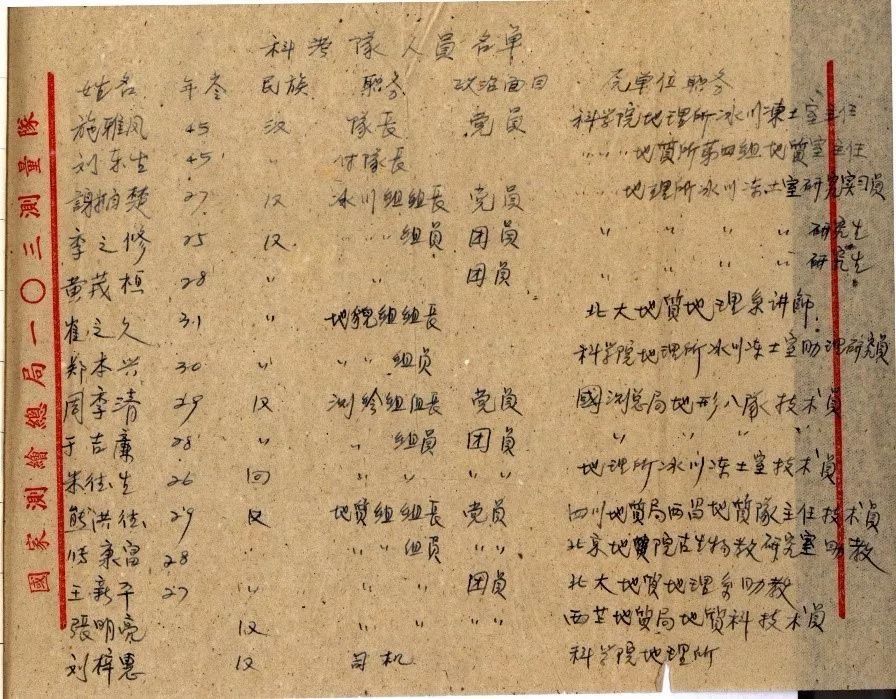 科考隊人員名单
姓名 年令 民族 职务 政治面目 原单位职务
施雅风 45 汉 隊長 党員 科学院地理所冰川凍土室主任
刘东生 45 〃 付隊長 〃〃〃地质所第四組地质室主任
謝自楚 27 汉 冰川組組長 党員 〃〃地理所冰川冻土室研究实习員
季之修 25 汉 〃〃組員 团員 〃〃〃〃〃研究生
黄茂桓 28 〃 〃〃 团員 〃〃〃〃〃研究生
崔之久 31 〃 地貌組組長 北大地质地理系讲師
郑本兴 30 〃 〃〃組員 科学院地理所冰川冻土室助理研究員
周季清 29 汉 測绘組組長 党員 國測总局地形八隊技术員
于吉廉 28 〃 〃〃組員 团員 〃〃〃〃
朱 生 26 回 〃〃〃 〃〃 地理所冰川冻土室技术員
熊洪德 29 汉 地质組組長 党員 四川地质局西昌地质隊主任技术員
康富 28 〃 〃〃組員 〃〃 北京地质院古生物教研究室助教
王新平 27 〃 〃〃〃 团員 北大地质地理系助教
張明亮 汉 〃〃〃 〃〃 西芷地质局地质科技术員
刘梓惠 汉 司机 科学院地理所
國家測繪總局一〇三測量隊